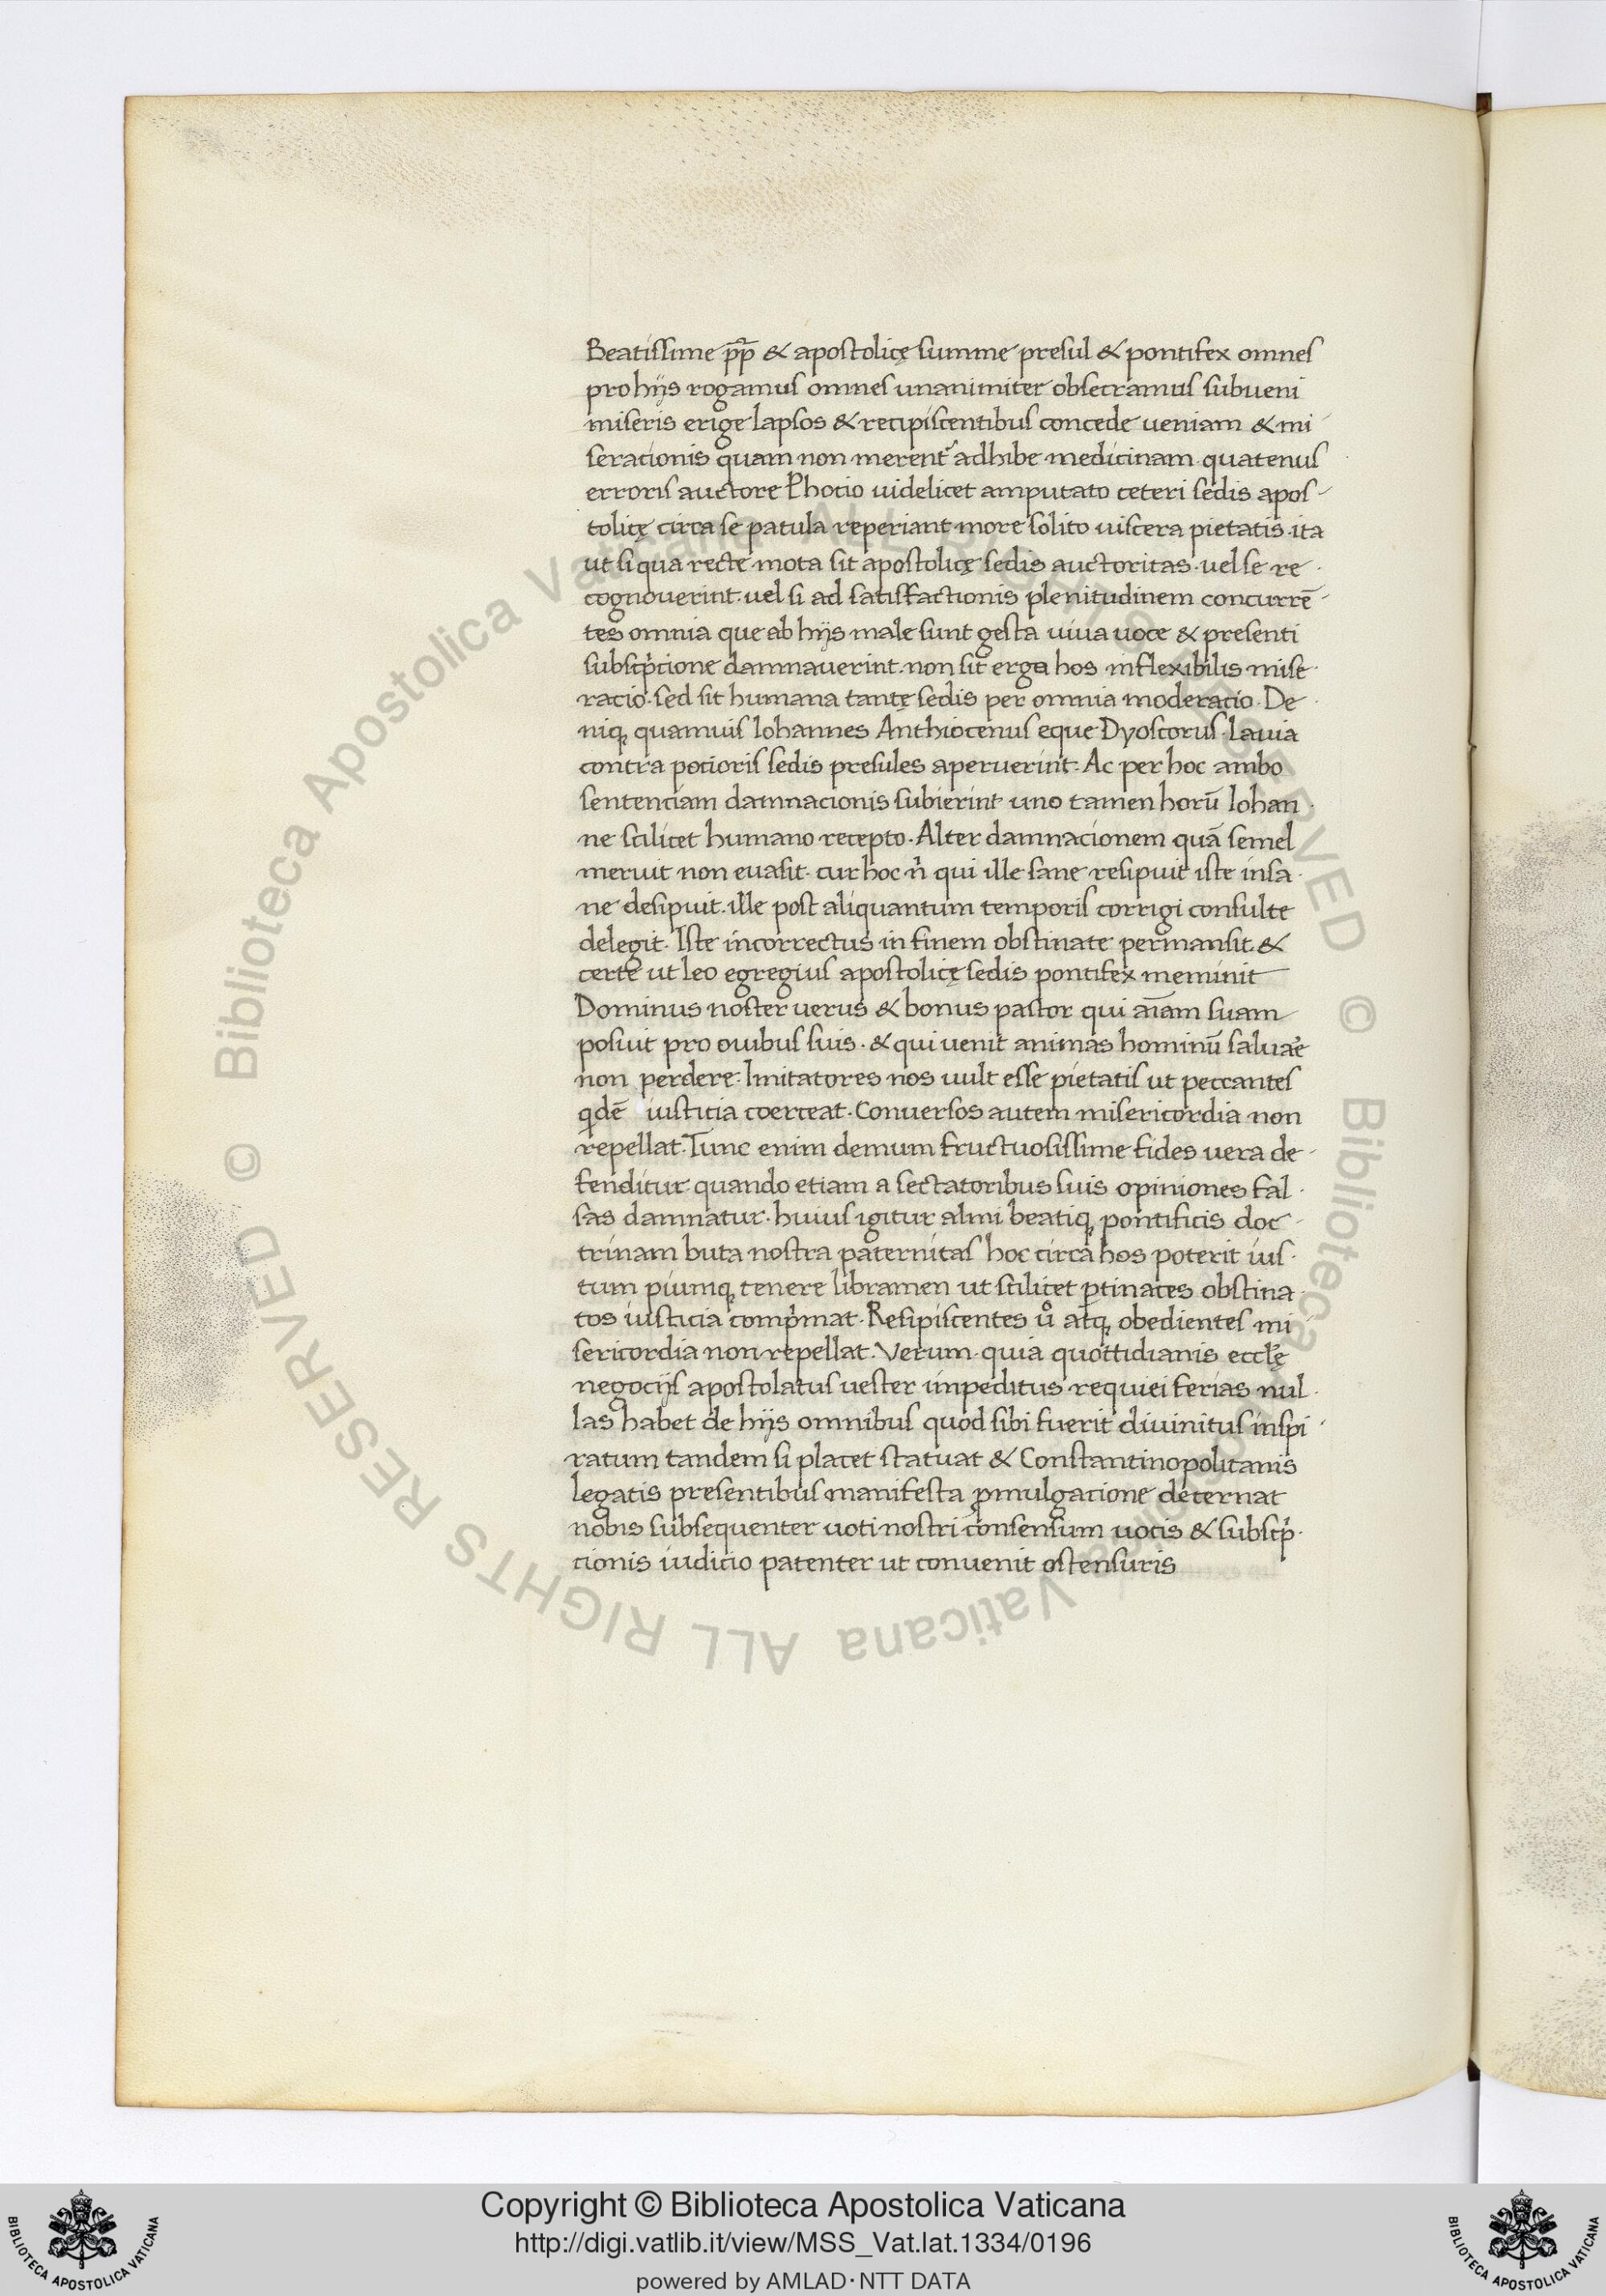 Beatissime pp̄ & apostolicę summe presul & pontifex omnes
pro hijs rogamus omnes unanimiter obsecramus subueni
miseris erige lapsos & recipiscentibus concede ueniam & mi
seracionis quam non merent᷑ adhibe medicinam quatenus
erroris auctore Photio uidelicet amputato ceteri sedis apos-
tolicę circa se patula reperiant more solito uiscera pietatis. ita
ut si qua recte mota sit apostolicę sedis auctoritas. uel se re
cognouerint. uel si ad satisfactionis plenitudinem concurrē-
tes omnia que ab hijs male sunt gesta uiua uoce & presenti
subscp̓cione damnauerint. non sit erga hos inflexibilis mise
racio. sed sit humana tantę sedis per omnia moderacio. De
niq; quamuis Iohannes Anthiocenus eque Dyoscorus. Lauia
contra pocioris sedis presules aperuerint. Ac per hoc ambo
sentenciam damnacionis subierint uno tamen horū Iohan
ne scilicet humano recepto. Alter damnacionem quā semel
meruit non euasit. cur hoc n̓ qui ille sane resipuit iste insa
ne desipuit. ille post aliquantum temporis corrigi consulte
delegit. Iste incorrectus in finem obstinate permansit. &
certe ut leo egregius apostolicę sedis pontifex meminit
Dominus noster uerus & bonus pastor qui aīam suam
posuit pro ouibus suis. & qui uenit animas hominū saluare
non perdere. Imitatores nos uult esse pietatis ut peccantes
q̓dē iusticia coerceat. Conuersos autem misericordia non
repellat. Tunc enim demum fructuosissime fides uera de-
fenditur quando etiam a sectatoribus suis opiniones fal
sas damnatur. huius igitur almi beatiq; pontificis doc
trinam buta nostra paternitas hoc circa hos poterit ius
tum piumq; tenere libramen ut scilicet ꝑtinaces obstina
tos iusticia comp̓mat. Resipiscentes ůo atq; obedientes mi
sericordia non repellat. Verum quia quottidianis eccl̄ę
negocijs apostolatus uester impeditus requiei ferias nul
las habet de hijs omnibus quod sibi fuerit diuinitus inspi
ratum tandem si placet statuat & Constantinopolitanis
legatis presentibus manifesta ꝓmulgacione decernat
nobis subsequenter uoti nostri consensum uocis & subscp̓
cionis iudicio patenter ut conuenit ostensuris
© Biblioteca Apostolica Vaticana ALL RIGHTS RESERVED © Biblioteca Apostolica Vaticana ALL RIGHTS RESERVED
Copyright © Biblioteca Apostolica Vaticana
http://digi.vatlib.it/view/MSS_Vat.lat.1334/0196
powered by AMLAD·NTT DATA
BIBLIOTECA APOSTOLICA VATICANA
BIBLIOTECA APOSTOLICA VATICANA